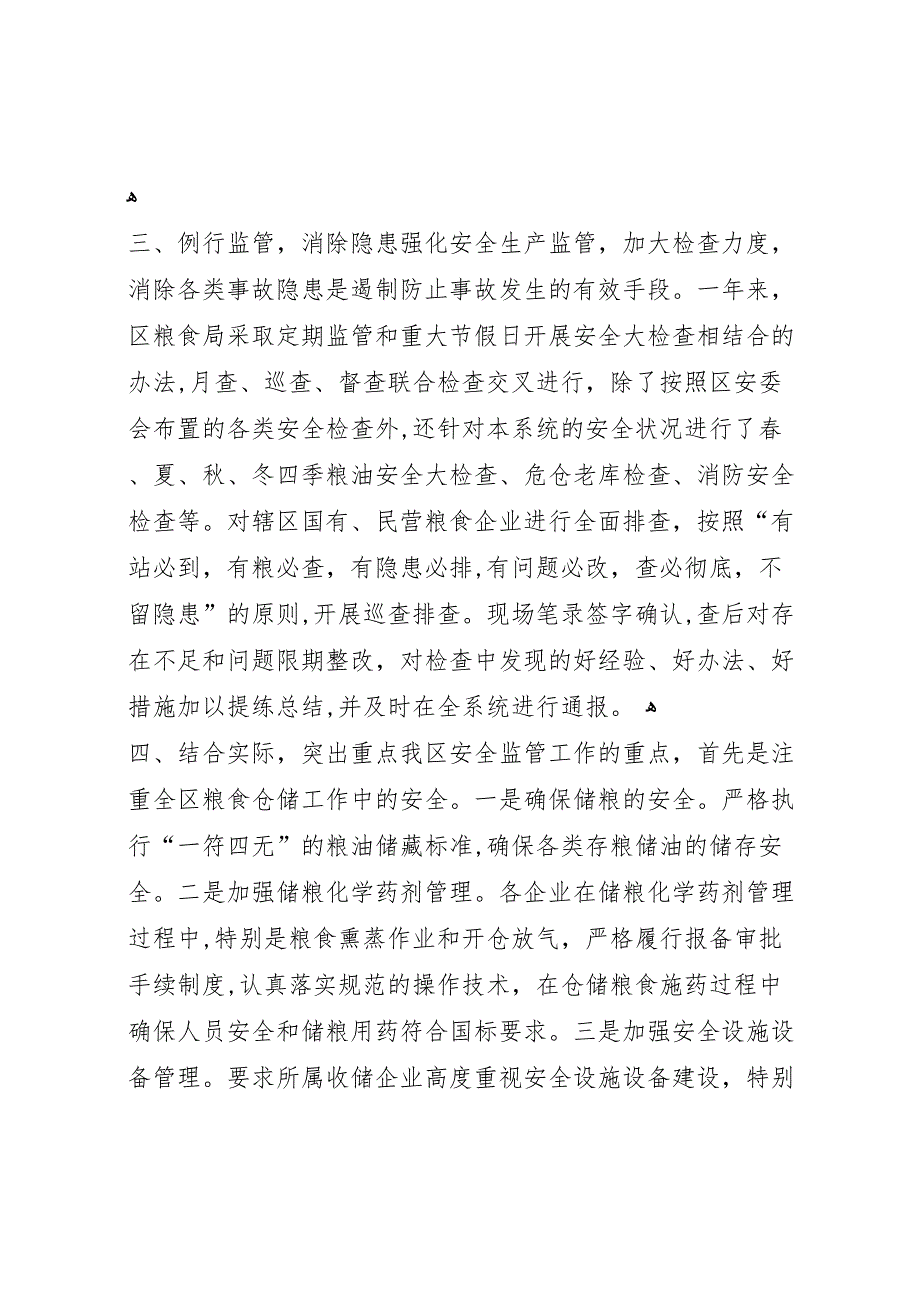 ﻫ
三、例行监管，消除隐患强化安全生产监管，加大检查力度，
消除各类事故隐患是遏制防止事故发生的有效手段。一年来，
区粮食局采取定期监管和重大节假日开展安全大检查相结合的
办法,月查、巡查、督查联合检查交叉进行，除了按照区安委
会布置的各类安全检查外,还针对本系统的安全状况进行了春
、夏、秋、冬四季粮油安全大检查、危仓老库检查、消防安全
检查等。对辖区国有、民营粮食企业进行全面排查，按照“有
站必到，有粮必查，有隐患必排,有问题必改，查必彻底，不
留隐患”的原则,开展巡查排查。现场笔录签字确认,查后对存
在不足和问题限期整改，对检查中发现的好经验、好办法、好
措施加以提练总结,并及时在全系统进行通报。 ﻫ
四、结合实际，突出重点我区安全监管工作的重点，首先是注
重全区粮食仓储工作中的安全。一是确保储粮的安全。严格执
行“一符四无”的粮油储藏标准,确保各类存粮储油的储存安
全。二是加强储粮化学药剂管理。各企业在储粮化学药剂管理
过程中,特别是粮食熏蒸作业和开仓放气，严格履行报备审批
手续制度,认真落实规范的操作技术，在仓储粮食施药过程中
确保人员安全和储粮用药符合国标要求。三是加强安全设施设
备管理。要求所属收储企业高度重视安全设施设备建设，特别